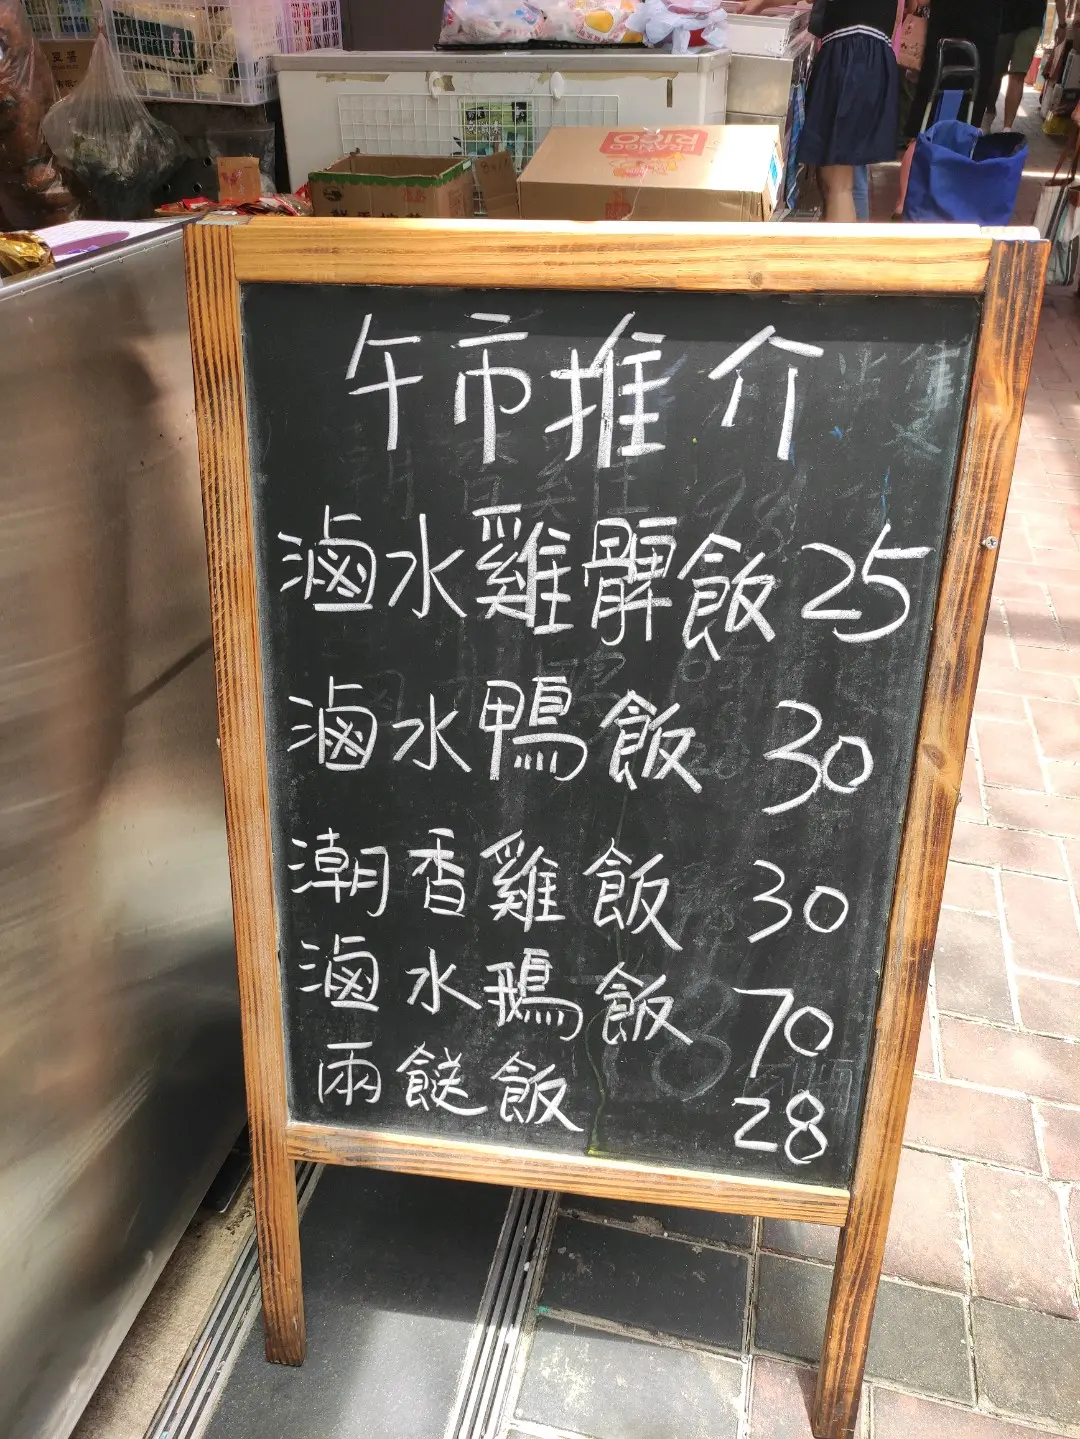 FRANGO
RICO
午市推介
滷水雞髀飯 25
滷水鴨飯 30
潮香雞飯 30
滷水鵝飯 70
兩餸飯 28